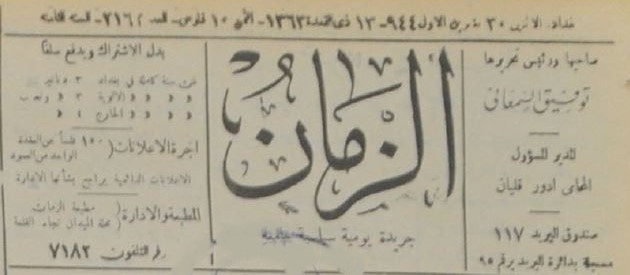 بغداد. الاثنين ٣٠ تشرين الاول ٩٤٤ - ١٣ ذي القعدة ١٣٦٣ - الثمن ١٠ فلوس - العدد ٢١٦١ - السنة الثامنة
صاحبها ورئيس تحريرها
توفيق السمعاني
المدير المسؤول
المحامي ادور قليان
صندوق البريد ١١٧
مسجلة بدائرة البريد برقم ٩٥
الزمان
جريدة يومية سياسية
بدل الاشتراك ويدفع سلفا
عن سنة كاملة في بغداد ٣ دنانير
» » » » الالوية ٣ » ونصف
» » » » الخارج ٤ »
اجرة الاعلانات ( ١٠٠ فلساً عن العقدة
الواحد من العمود
الاعلانات الدائمية يراجع بشأنها الادارة
المطبعة والادارة ( مطبعة الزمان
محلة الميدان تجاه القلعة
رقم التلفون ٧١٨٢